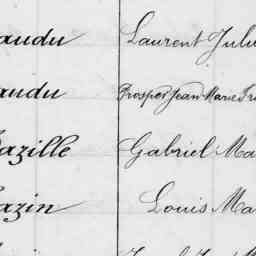 audu Laurent Jul
audu Prosper Jean Marie Fr
azille Gabriel Ma
azin Louis Ma